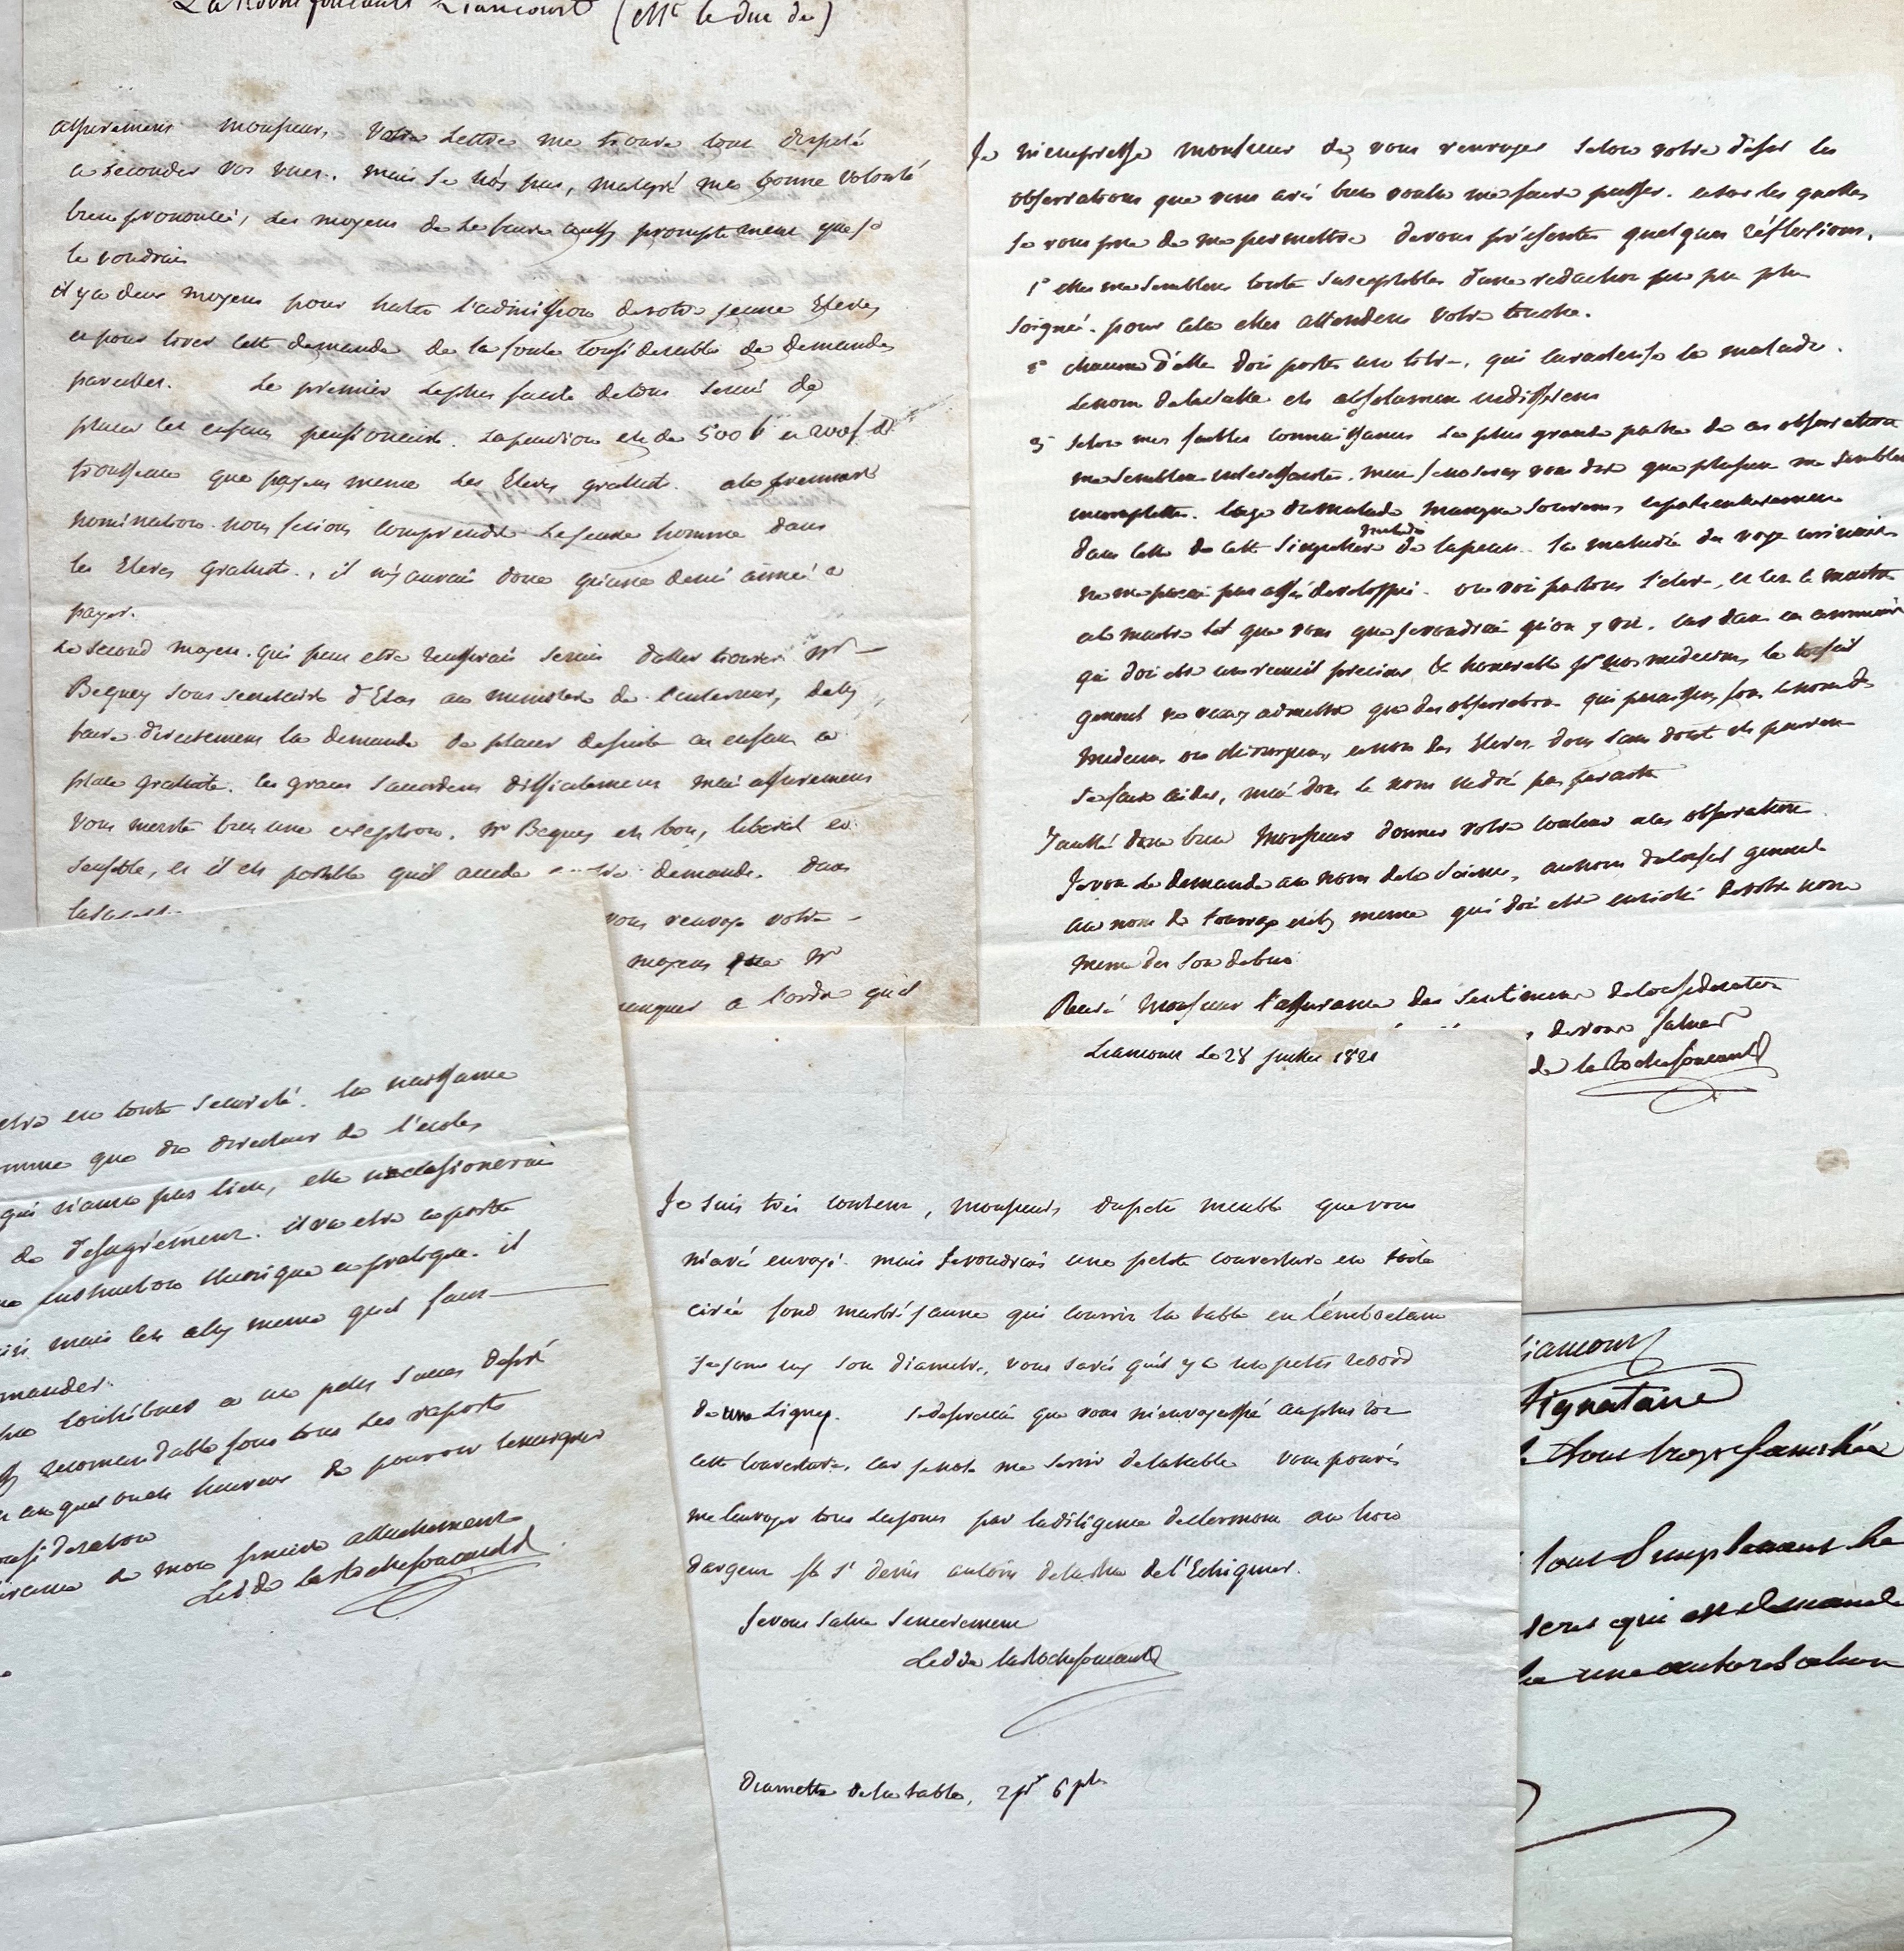 La Rochefoucault Liancourt (Mr. le duc de)
assurement monsieur, votre Lettre me trouve tout disposé
a seconder vos vues. mais Je n'ès pas, malgré ma bonne volonté
bien prononcée, des moyens de le faire aussy promptement que Je
le voudrais
il y a deux moyens pour hater l'admission de votre jeune Eleves
et pour tirer cette demande de la foule considerable de demandes
pareilles. Le premier Le plus facile de tous serait de
placer cet enfant pensionaire. la pension est de 500 # et 200f de
trousseau que payent meme les Eleves gratuits. a la premiere
nomination nous ferions comprendre Le jeune homme dans
les Eleves gratuits, il n'y aurait donc qu'une demi année a
payer.
Le second moyen qui peut etre reussirait serait d'aller trouver Mr
Bequey sous secretaire d'Etat au ministere de l'interieur, de luy
faire directement la demande de placer de suite cet enfant a
place gratuite. ces graces s'accordent difficilement mais assurement
vous merités bien une exception. Mr Bequey est bon, liberal et
sensible, et il est possible qu'il accede a votre demande. dans
vous renvoye votre
moyens que Mr
a l'ordre qu'il
Je m'empresse monsieur de vous renvoyer selon votre desir les
observations que vous avés bien voulu me faire passer. et sur les quelles
Je vous prie de me permettre de vous présenter quelques réflexions.
1° elles me semblent toutes susceptibles d'une redaction un peu plus
soignée. pour cela elles attendent votre touche.
2° chacune d'elle doit porter un titre, qui caracterise la maladie.
Le nom de la salle est absolument indifferent
3° selon mes faibles connaissances la plus grande partie de ces observations
me semblent interessantes. mais J'enoseray vous dire que plusieurs me semblent
incomplettes. l'age du malade manque souvent, e particulierement
dans celle de cette singuliere maladie de la peau. la maladie des voyes urinaires
ne me parait pas assés developpée. on voit partout l'eleve, et c'est le maitre
et le maitre tel que vous que Je voudrais qu'on y vit. car dans ce
qui doit etre un recueil precieux & honorable pr nos medecins, le conseil
general ne veut admettre que des observations qui paraissent sous le nom de
medecins ou chirurgiens, et non des Eleves dont sans doute ils peuvent
se faire aider, mais dont le nom ne doit pas paraitre
Veuillé donc bien Monsieur donner votre couleur a ces observations.
Je vous le demande au nom de la science, au nom du conseil general
au nom de l'ouvrage meme qui doit etre enrichi de votre nom
meme des son debut
Recevé Monsieur l'assurance des sentimens de consideration
de vous saluer
de la Rochefoucauld
etre en toute securité. la naissance
que du directeur de l'ecole
qui n'aura pas lieu, elle n'occasionerait
de desagrément. il va etre a portée
instruction theorique et pratique. il
mais c'est a luy meme qu'il faut
contribuer a un petit succes desiré
recomandable sous tous les raports
auquel on est heureux de pouvoir temoigner
consideration
de mon sincere attachement
Le d de la Rochefoucauld
Liancourt Le 28 Juillet 1821
Je suis très content, monsieur, du petit meuble que vous
m'avés envoyé. mais Je voudrais une petite couverture en toile
cirée fond marbré jaune qui couvrit la table en l'emboetant
son diametre. vous savés qu'il y a un petit rebord
de une Ligne. Je desirerais que vous m'envoyassiés au plus tot
cette couverture, car Je n'ose me servir de la table vous pourés
me l'envoyer tous les jours par la diligence de Clermont au Lion
d'argent fg St denis au coin de la Rue de l'Echiquier.
Je vous salue sincerement
Le d de la Rochefoucauld
Diametre de la table, 2 pds 6 pces
Liancourt
signataire
tout simplement
qui est
une autorisation